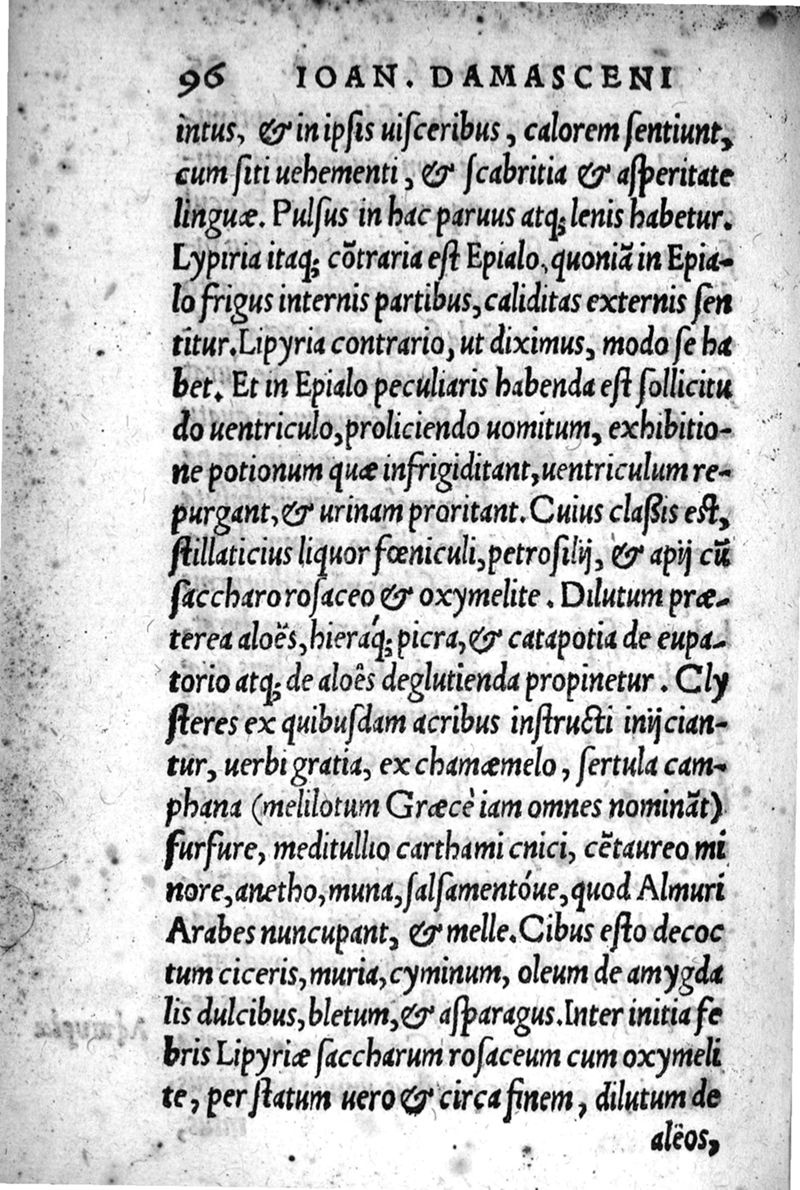 96 IOAN. DAMASCENI
intus, & in ipſis uiſceribus, calorem ſentiunt,
cum ſiti uehementi, & ſcabritia & aſperitate
linguæ. Pulſus in hac paruus atq; lenis habetur.
Lypiria itaq; cõtraria eſt Epialo, quoniã in Epia-
lo frigus internis partibus, caliditas externis ſen
titur. Lipyria contrario, ut diximus, modo ſe ha
bet. Et in Epialo peculiaris habenda eſt ſollicitu
do uentriculo, proliciendo uomitum, exhibitio-
ne potionum quæ infrigiditant, uentriculum re-
purgant, & urinam proritant. Cuius claßis eſt,
ſtillaticius liquor fœniculi, petroſilij, & apij cũ
ſaccharo roſaceo & oxymelite. Dilutum præ-
terea aloës, hieráq; picra, & catapotia de eupa-
torio atq; de aloês deglutienda propinetur. Cly
ſteres ex quibuſdam acribus inſtructi inijcian-
tur, uerbi gratia, ex chamæmelo, ſertula cam-
phana (melilotum Græcè iam omnes nominãt)
furfure, meditullio carthami cnici, cẽtaureo mi
nore, anetho, muna, ſalſamentóue, quod Almuri
Arabes nuncupant, & melle. Cibus eſto decoc
tum ciceris, muria, cyminum, oleum de amygda
lis dulcibus, bletum, & aſparagus. Inter initia fe
bris Lipyriæ ſaccharum roſaceum cum oxymeli
te, per ſtatum uero & circa finem, dilutum de
alëos,